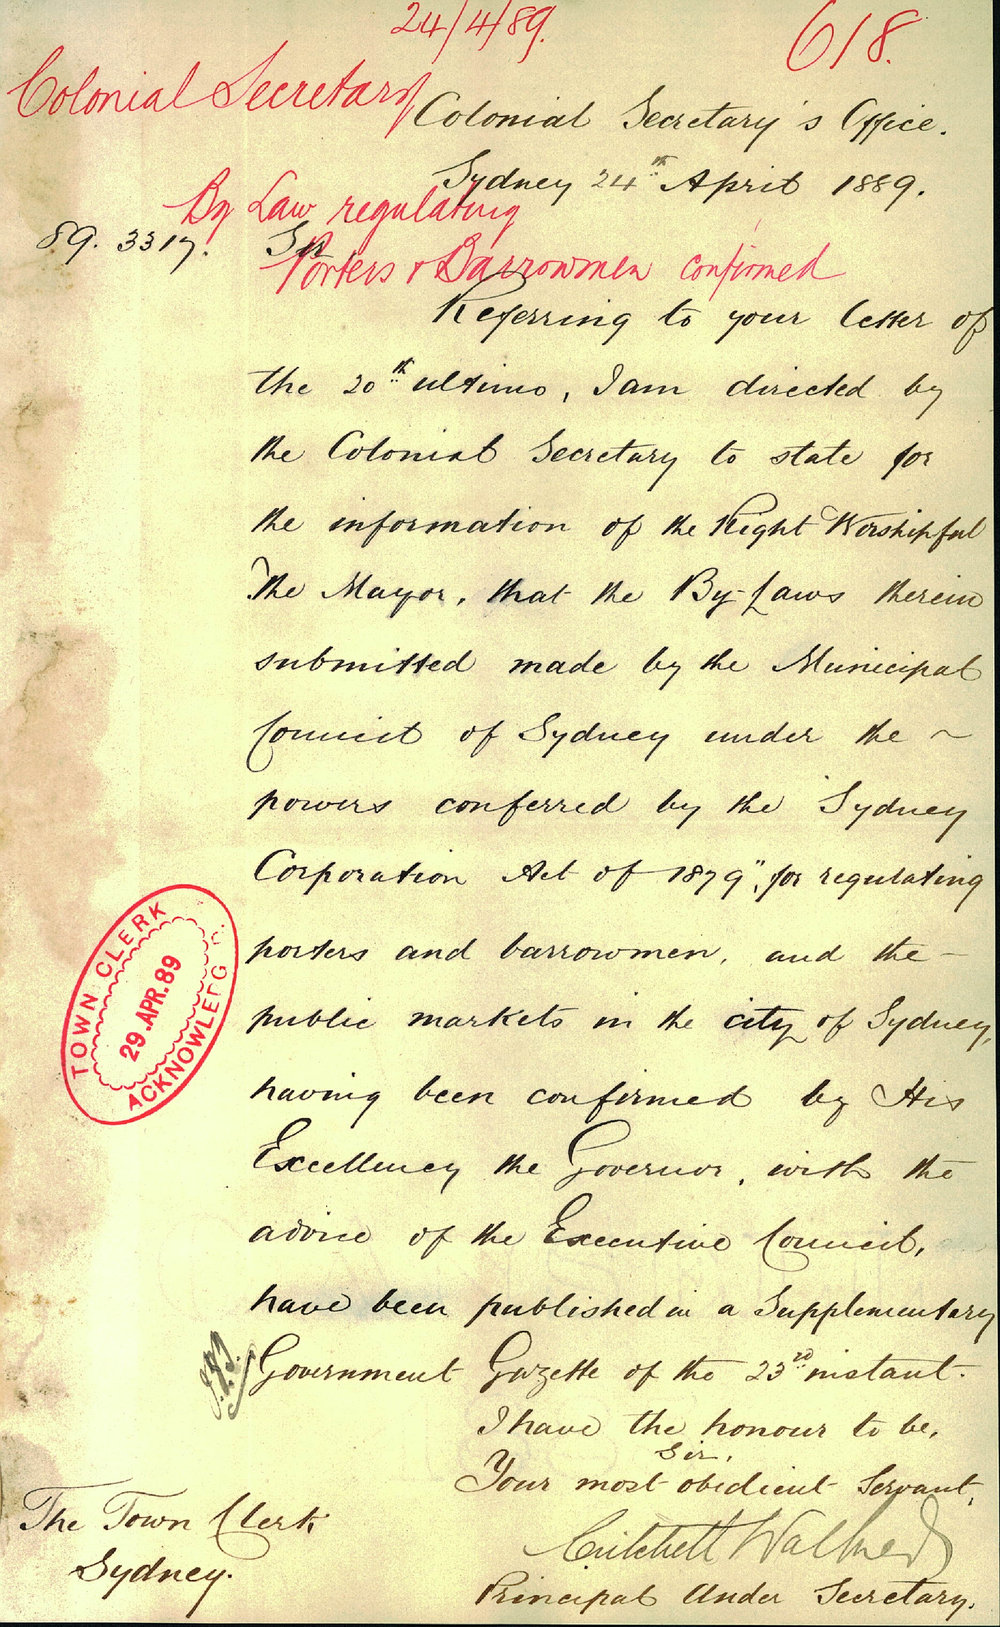 24/4/89.
618.
Colonial Secretary
Colonial Secretary's Office.
Sydney 24th April 1889.
By Law regulating
Porters & Barrowmen confirmed
89. 3317.
Sir
Referring to your letter of
the 20th ultimo, I am directed by
the Colonial Secretary to state for
the information of the Right Worshipful
The Mayor, that the By-Laws therein
submitted made by the Municipal
Council of Sydney under the ~
powers conferred by the Sydney
Corporation Act of 1879", for regulating
porters and barrowmen, and the -
public markets in the city of Sydney,
having been confirmed by His
Excellency the Governor, with the
advice of the Executive Council,
have been published in a Supplementary
Government Gazette of the 23rd instant.
I have the honour to be,
Sir,
Your most obedient Servant,
Critchett Walker
Principal Under Secretary.
The Town Clerk
Sydney.
TOWN CLERK
29.APR.89